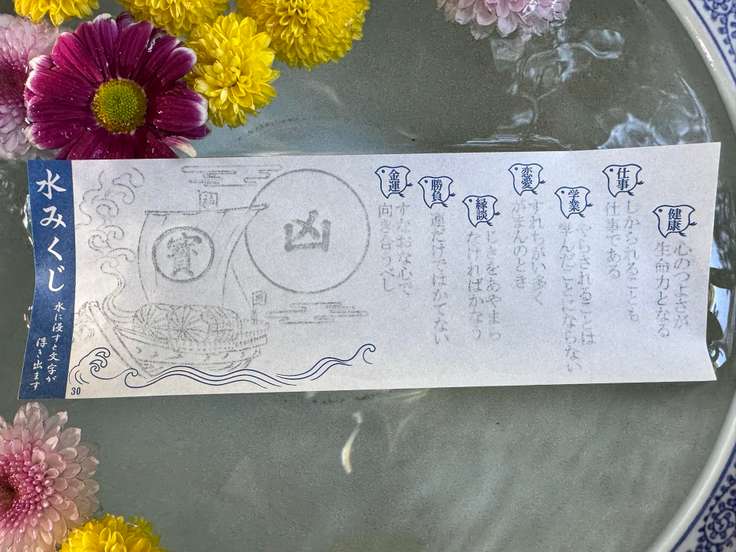 健康
心のつよさが
生命力となる
仕事
しかられることも
仕事である
学業
されることは
学んだことにならない
恋愛
すれちがい多く
がまんのとき
縁談
じきをあやまら
なければかなう
勝負
運だけではかてない
金運
な心で
向き合うべし
凶
寶
水みくじ
水に浸すと文字が
浮き出ます
30